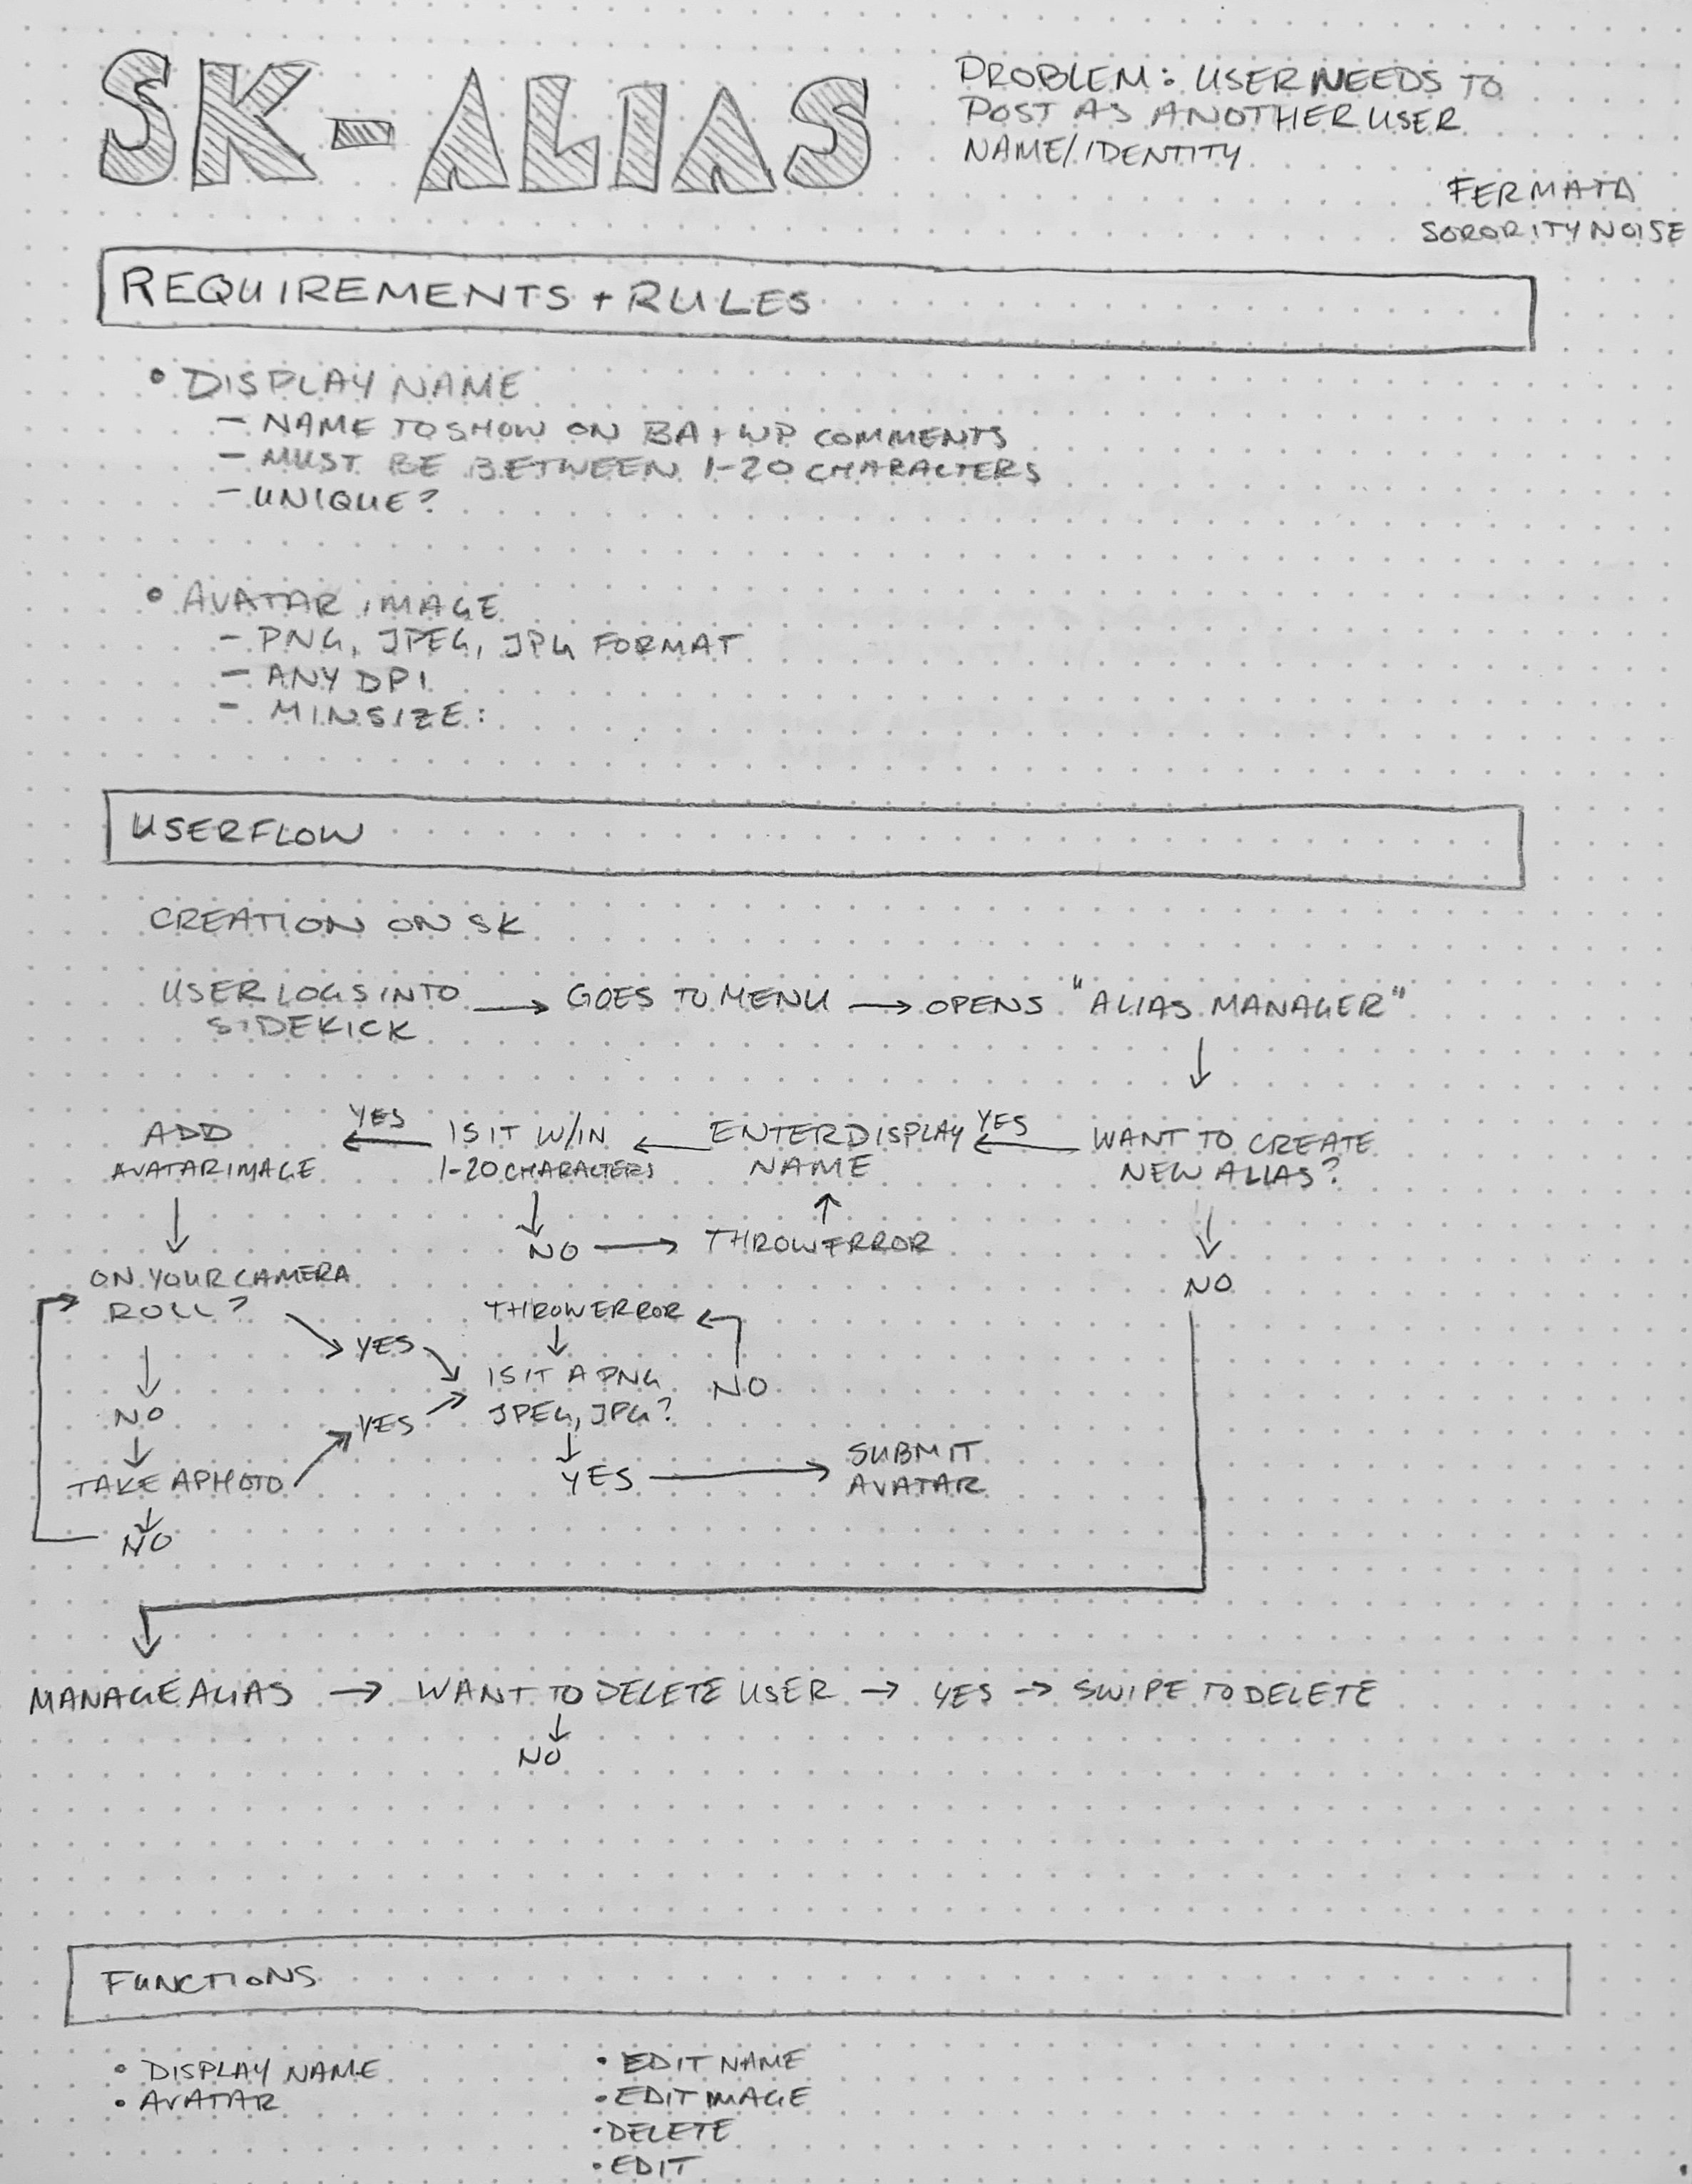 SK-ALIAS
PROBLEM: USER NEEDS TO
POST AS ANOTHER USER
NAME/IDENTITY
FERMATA
SORORITY NOISE
REQUIREMENTS + RULES
• DISPLAY NAME
- NAME TO SHOW ON BA + WP COMMENTS
- MUST BE BETWEEN 1-20 CHARACTERS
- UNIQUE?
• AVATAR IMAGE
- PNG, JPEG, JPG FORMAT
- ANY DPI
- MIN SIZE:
USERFLOW
CREATION ON SK
USER LOGS INTO
SIDEKICK
→ GOES TO MENU → OPENS "ALIAS MANAGER"
↓
WANT TO CREATE
NEW ALIAS?
YES
←
ENTER DISPLAY
NAME
←
IS IT W/IN
1-20 CHARACTERS
YES
←
ADD
AVATAR IMAGE
↓
NO → THROW ERROR
↑
↓
NO
↓
ON YOUR CAMERA
ROLL?
→ YES →
↓
NO
↓
TAKE A PHOTO
→ YES →
↓
NO
THROW ERROR ←
↓
IS IT A PNG
JPEG, JPG?
NO
↓
YES → SUBMIT
AVATAR
MANAGE ALIAS → WANT TO DELETE USER → YES → SWIPE TO DELETE
↓
NO
FUNCTIONS
• DISPLAY NAME
• AVATAR
• EDIT NAME
• EDIT IMAGE
• DELETE
• EDIT